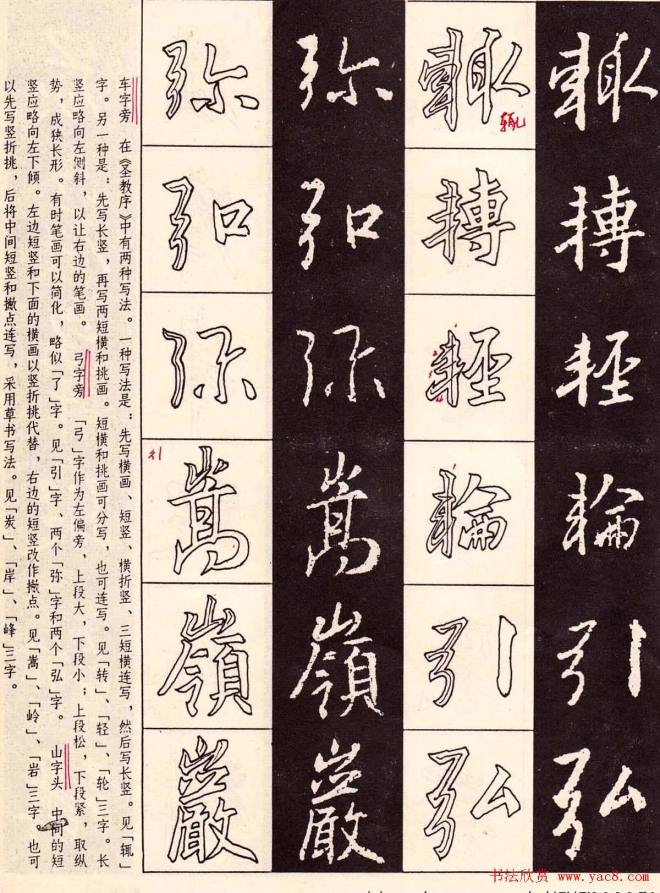 輒
轉
輕
輪
引
弘
輒
辄
轉
輕
輪
引
弘
弥
弘
弥
嵩
嶺
巖
弥
弘
弥
嵩
嶺
巖
车字旁 在《圣教序》中有两种写法。一种写法是：先写横画、短竖、横折竖、三短横连写，然后写长竖。见「辄」
字。另一种是：先写长竖，再写两短横和挑画。短横和挑画可分写，也可连写。见「转」、「轻」、「轮」三字。长
竖应略向左侧斜，以让右边的笔画。 弓字旁 「弓」字作为左偏旁，上段大，下段小；上段松，下段紧，取纵
势，成狭长形。有时笔画可以简化，略似「了」字。见「引」字、两个「弥」字和两个「弘」字。 山字头 中间的短
竖应略向左下倾。左边短竖和下面的横画以竖折挑代替，右边的短竖改作撇点。见「嵩」、「岭」、「岩」三字。也可
以先写竖折挑，后将中间短竖和撇点连写，采用草书写法。见「炭」、「岸」、「峰」三字。
书法欣赏 www.yac8.com